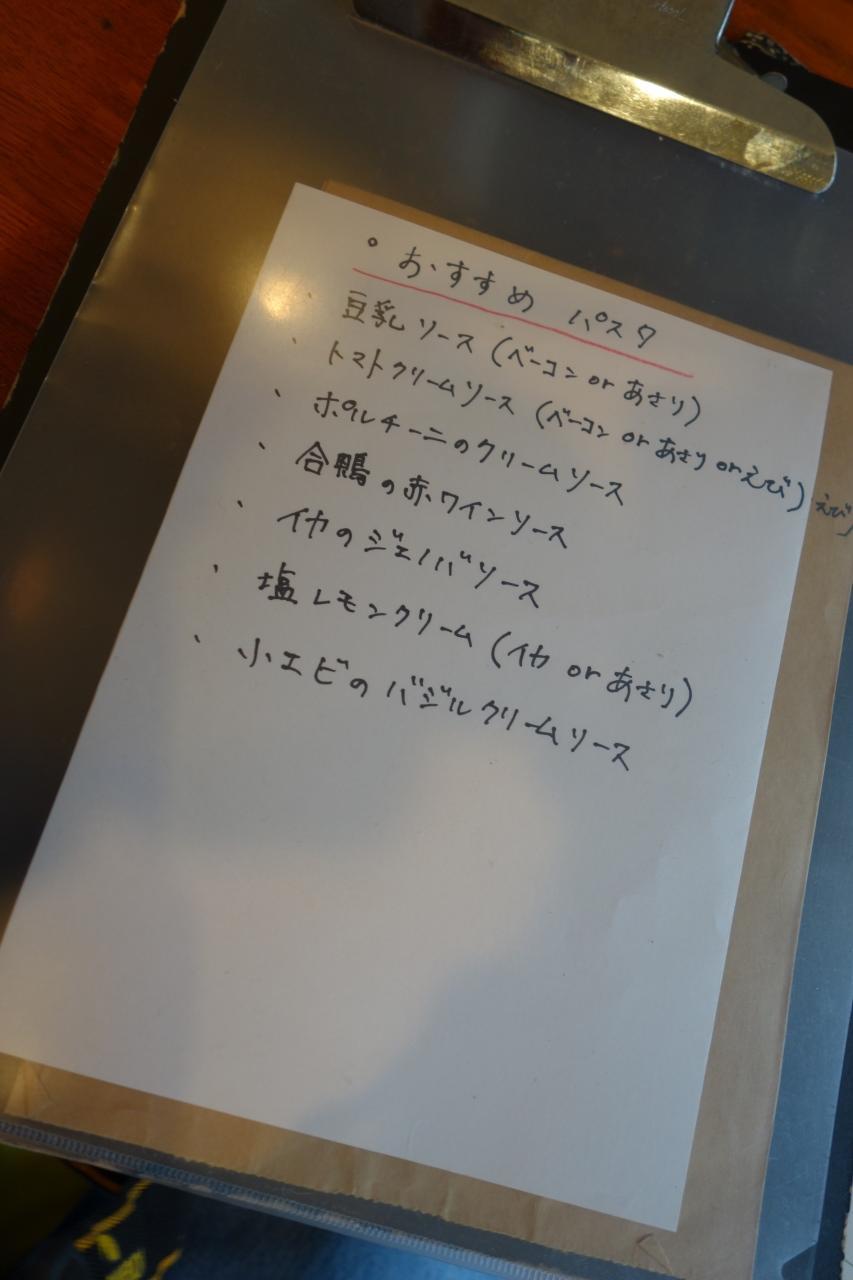 ° おすすめ パスタ
・ 豆乳ソース (ベーコン or あさり)
・ トマトクリームソース (ベーコン or あさり or えび) えび)
・ ポルチーニのクリームソース
・ 合鴨の赤ワインソース
・ イカのジェノバソース
・ 塩レモンクリーム (イカ or あさり)
・ 小エビのバジルクリームソース